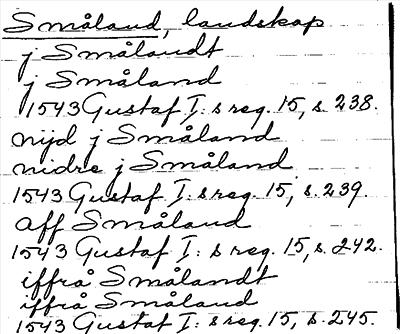 Småland, landskap
j Smålandt
j Småland
1543 Gustaf I:s reg. 15, s. 238.
nijd j Småland
nidre j Småland
1543 Gustaf I:s reg. 15, s. 239.
aff Småland
1543 Gustaf I:s reg. 15, s. 242.
iffrå Smålandt
iffrå Småland
1543 Gustaf I:s reg. 15, s. 245.